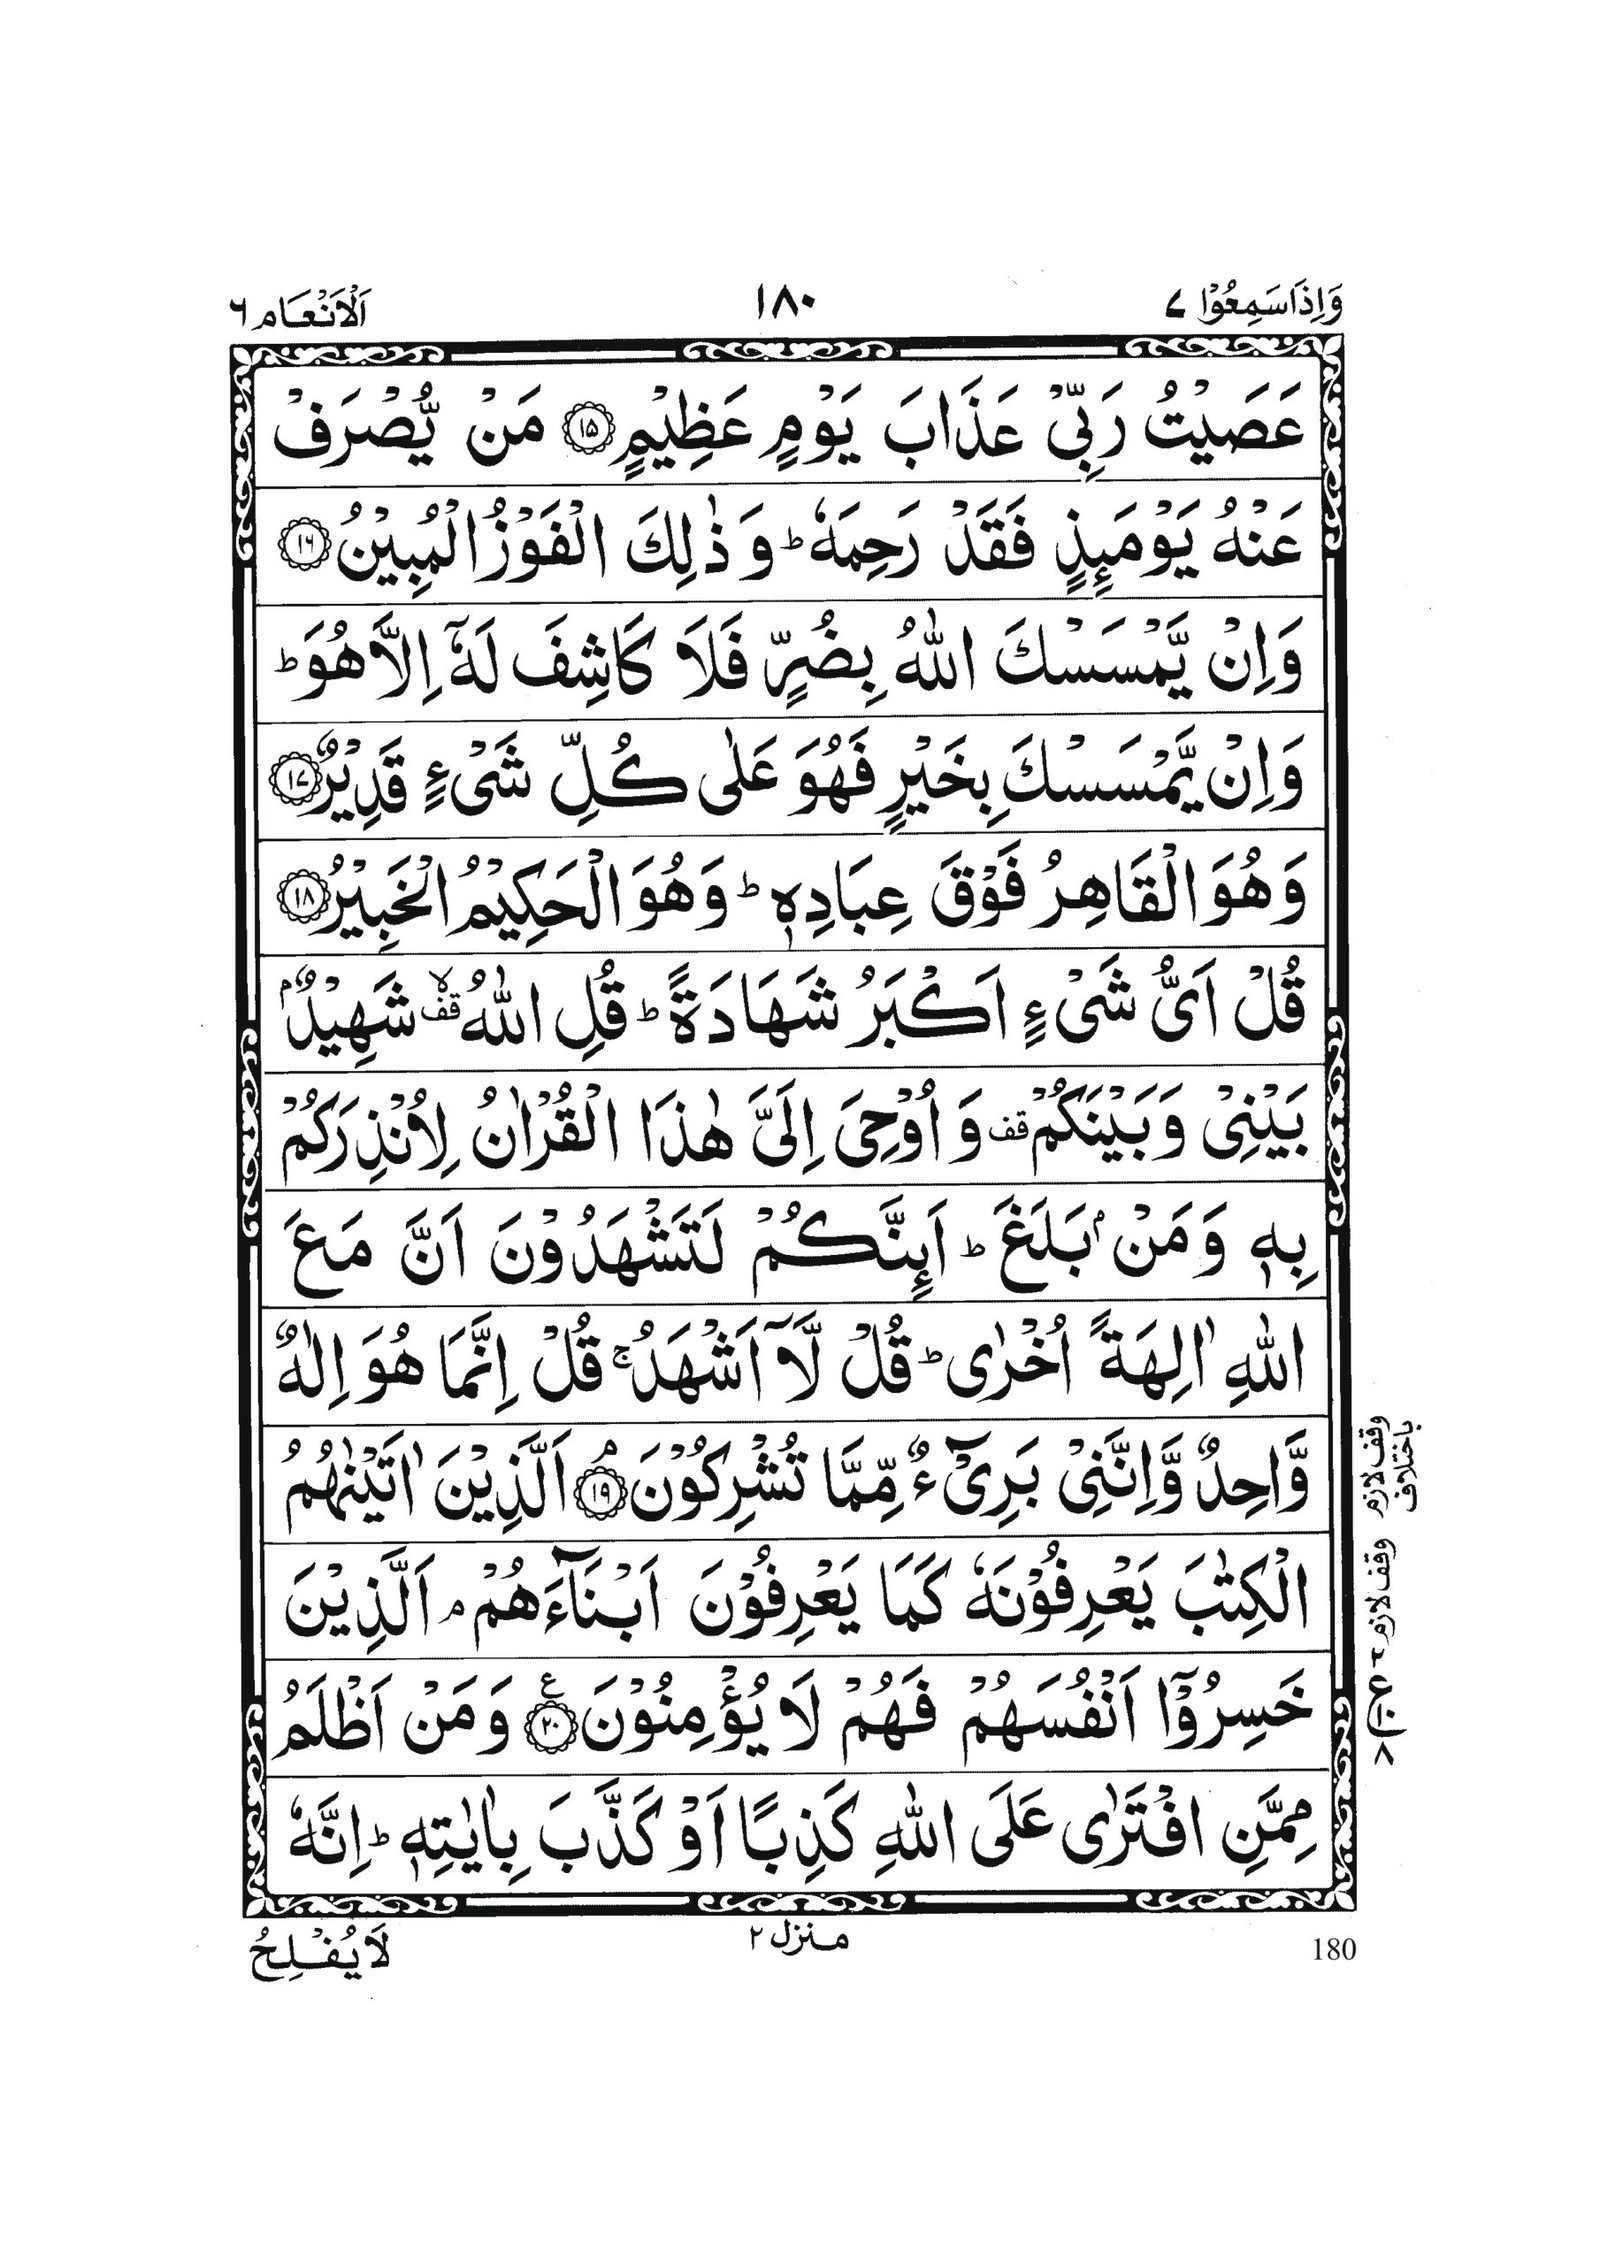 وَاِذَاسَمِعُوْا ٧ ١٨٠ اَلْاَنْعَام ٦
عَصَيْتُ رَبِّيْ عَذَابَ يَوْمٍ عَظِيْمٍ ۝١٥ مَنْ يُّصْرَفْ
عَنْهُ يَوْمَىِٕذٍ فَقَدْ رَحِمَهٗ ؕ وَ ذٰلِكَ الْفَوْزُ الْمُبِيْنُ ۝١٦
وَاِنْ يَّمْسَسْكَ اللّٰهُ بِضُرٍّ فَلَا كَاشِفَ لَهٗۤ اِلَّا هُوَ ؕ
وَاِنْ يَّمْسَسْكَ بِخَيْرٍ فَهُوَ عَلٰى كُلِّ شَيْءٍ قَدِيْرٌ ۝١٧
وَهُوَ الْقَاهِرُ فَوْقَ عِبَادِهٖ ؕ وَهُوَ الْحَكِيْمُ الْخَبِيْرُ ۝١٨
قُلْ اَيُّ شَيْءٍ اَكْبَرُ شَهَادَةً ؕ قُلِ اللّٰهُ ۙ قف شَهِيْدٌۢ
بَيْنِيْ وَبَيْنَكُمْ قف وَ اُوْحِيَ اِلَيَّ هٰذَا الْقُرْاٰنُ لِاُنْذِرَكُمْ
بِهٖ وَ مَنْۢ بَلَغَ ؕ اَىِٕنَّكُمْ لَتَشْهَدُوْنَ اَنَّ مَعَ
اللّٰهِ اٰلِهَةً اُخْرٰى ؕ قُلْ لَّاۤ اَشْهَدُ ۚ قُلْ اِنَّمَا هُوَ اِلٰهٌ
وَّاحِدٌ وَّاِنَّنِيْ بَرِيْٓءٌ مِّمَّا تُشْرِكُوْنَ ۝١٩ ۘ اَلَّذِيْنَ اٰتَيْنٰهُمُ
الْكِتٰبَ يَعْرِفُوْنَهٗ كَمَا يَعْرِفُوْنَ اَبْنَآءَهُمْ ۘ اَلَّذِيْنَ
خَسِرُوْۤا اَنْفُسَهُمْ فَهُمْ لَا يُؤْمِنُوْنَ ۝٢٠ ع وَ مَنْ اَظْلَمُ
مِمَّنِ افْتَرٰى عَلَى اللّٰهِ كَذِبًا اَوْ كَذَّبَ بِاٰيٰتِهٖ ؕ اِنَّهٗ
وقف لازم
باختلاف
وقف لازم
٢
ع
١٠
٨
180 منزل ٢ لَا يُفْلِحُ